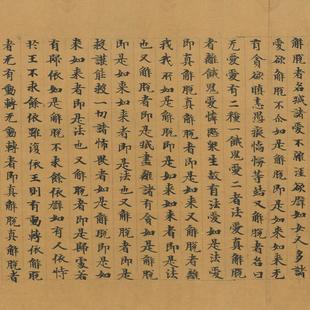 解脫者名滅諸愛不雜淫欲譬如女人多諸
愛欲解脫不尒如是解脫即是如來如來无
有貪欲瞋恚愚癡憍慢等結又解脫者名曰
无愛愛有二種一餓鬼愛二者法愛真解脫
者離餓鬼愛憐愍眾生故有法愛如是法愛
即真解脫真解脫者即是如來又解脫者離
我我所如是解脫即是如來如來者即是法
也又解脫者即是滅盡離諸有貪如是解脫
即是如來如來者即是法也又解脫者即是
救護能救一切諸怖畏者如是解脫即是如
來如來者即是法也又解脫者即是歸處若
有歸依如是解脫不求餘依譬如有人依恃
於王不求餘依雖復依王則有動轉依解脫
者无有動轉无動轉者即真解脫真解脫者